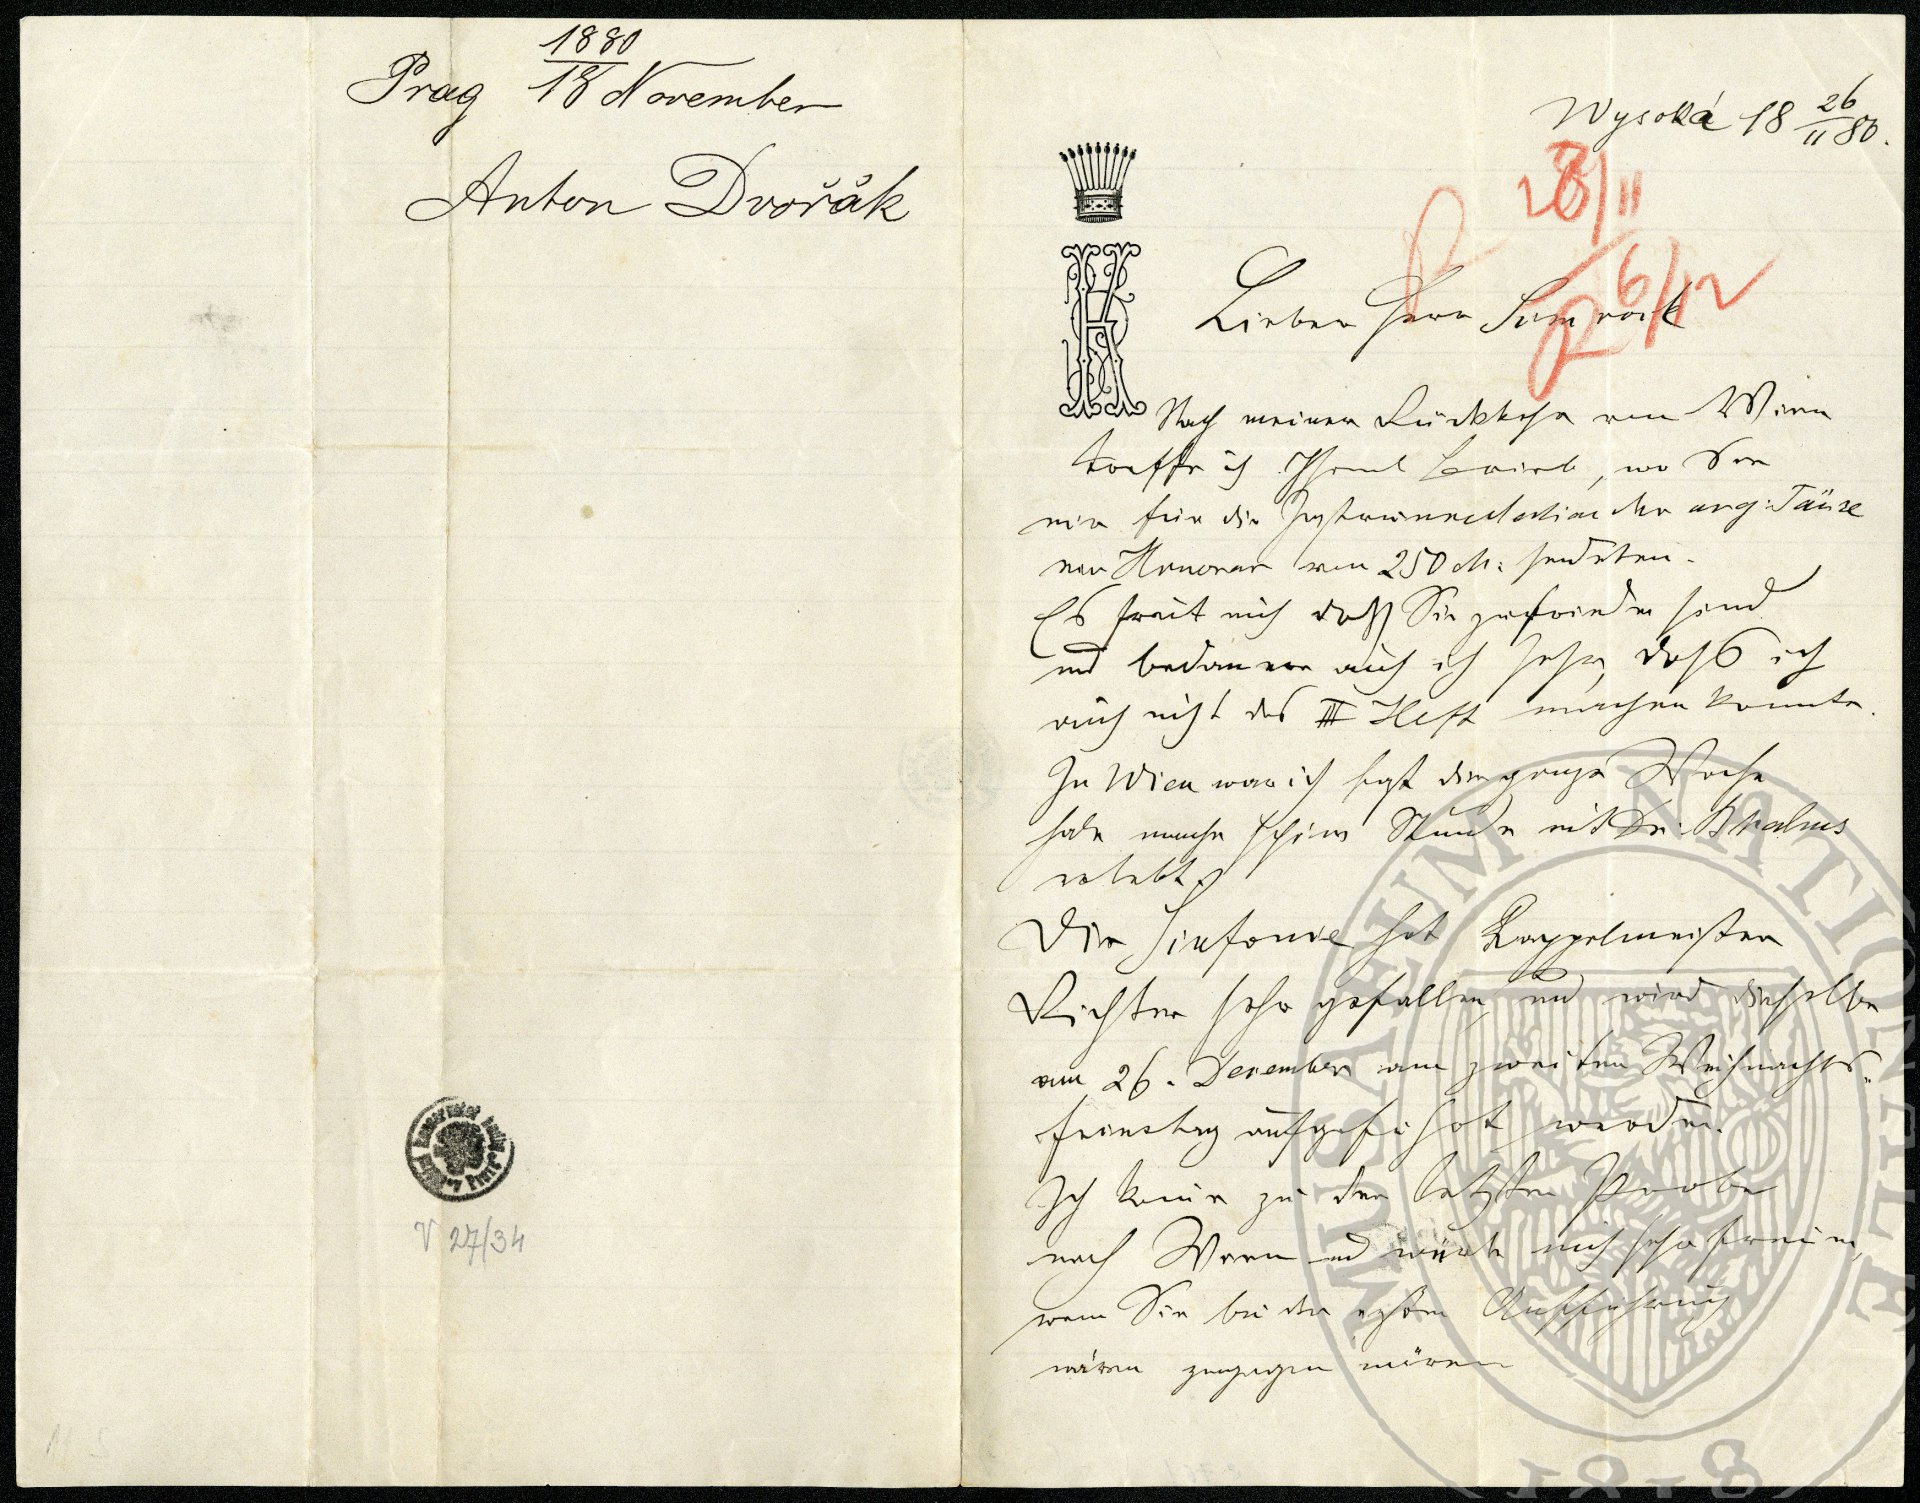 1880
Prag 18 November
Anton Dvořák
V 27/34
Wysoká 18 26/11 80.
28/11
6/12
Lieber Herr Simrock
Nach meiner Rückkehr von Wien
treffe ich Ihren Brief, wo Sie
mir für die Instrumentation der ung: Tänze
ein Honorar von 250 M: sendeten.
Es freut mich daß Sie zufrieden sind
und bedauere auch ich sehr, dass ich
auch nicht das III Heft machen konnte.
In Wien war ich fast die ganze Woche
habe manche schöne Stunde mit Dr: Brahms
erlebt.
Die Sinfonie hat Kappelmeister
Richter sehr gefallen, und wird dieselbe
am 26. Dezember am zweiten Weihnachts-
feiertag aufgeführt werden.
Ich komme zu der letzten Probe
nach Wien und würde mich sehr freuen,
wenn Sie bei der ersten Aufführung
wären zugegen wären
MUSAEUM NATIONALE
1818